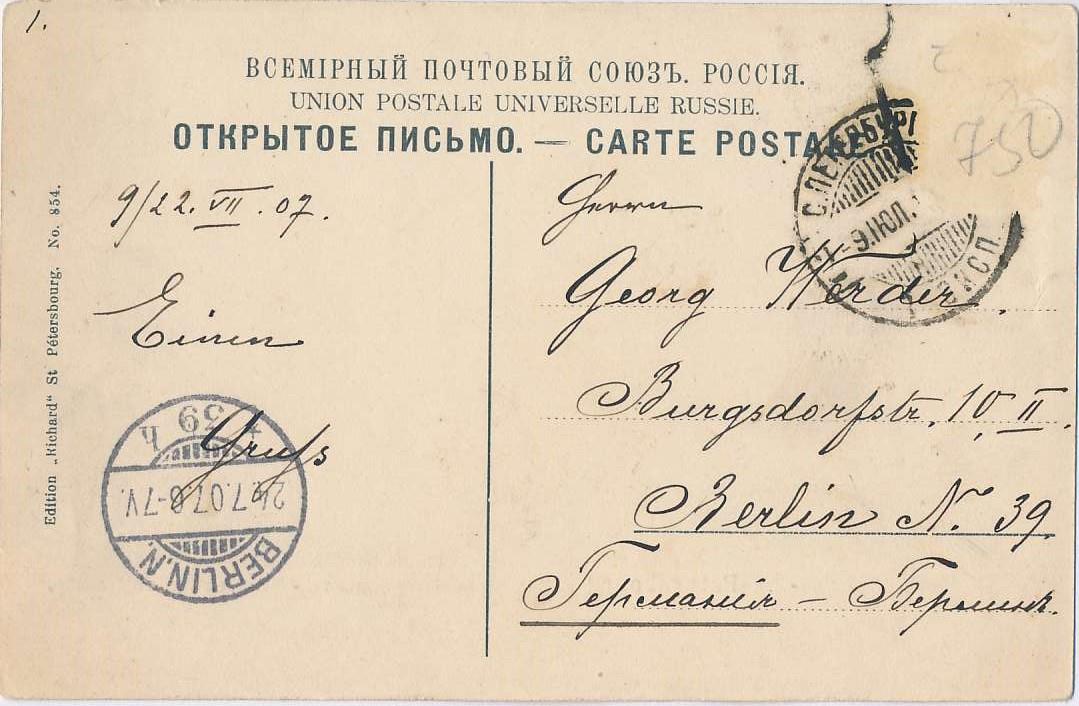 1.
ВСЕМІРНЫЙ ПОЧТОВЫЙ СОЮЗЪ. РОССІЯ.
UNION POSTALE UNIVERSELLE RUSSIE.
ОТКРЫТОЕ ПИСЬМО. — CARTE POSTALE
750
С.ПЕТЕРБУРГ
9 ІЮЛ.
9/22. VII. 07.
Einen
Gruss
Herrn
Georg Werder.
Burgsdorfstr. 10, II.
Berlin N. 39.
Германія — Берлинъ.
* 39 h
7.07.6-7V.
BERLIN.N.
Edition „Richard“ St Pétersbourg. No. 854.